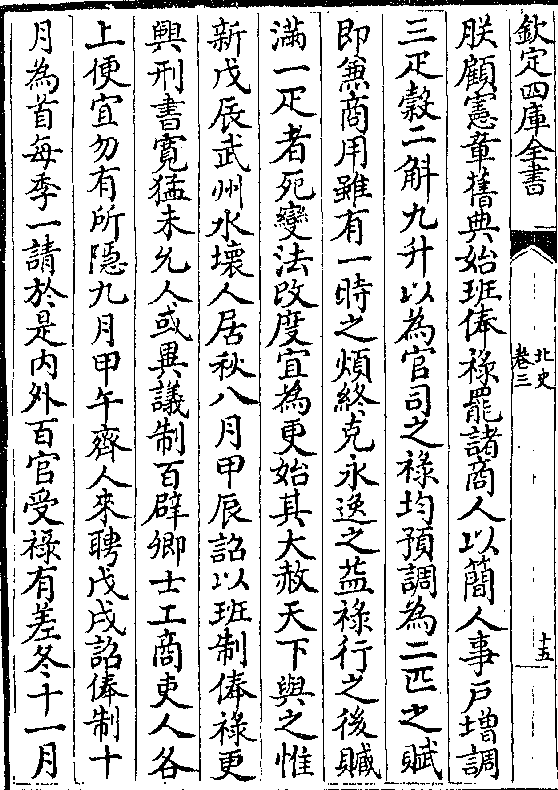 欽定四庫全書
北史
卷三
十五
朕顧憲章舊典始班俸祿罷諸商人以簡人事戶増調
三疋糓二斛九升以為官司之祿均預調為二匹之賦
即兼商用雖有一時之煩終克永逸之益祿行之後贓
滿一疋者死變法改度宜為更始其大赦天下與之惟
新戊辰武州水壊人居秋八月甲辰詔以班制俸祿更
興刑書寛猛未允人或異議制百辟卿士工商吏人各
上便宜勿有所隠九月甲午齊人來聘戊戌詔俸制十
月為首每季一請於是内外百官受祿有差冬十一月